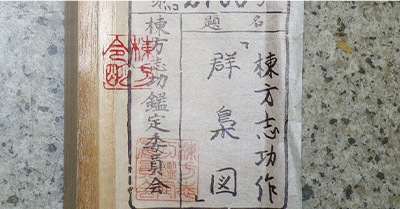 題名
棟方志功作
『群梟図』
棟方志功鑑定委員会